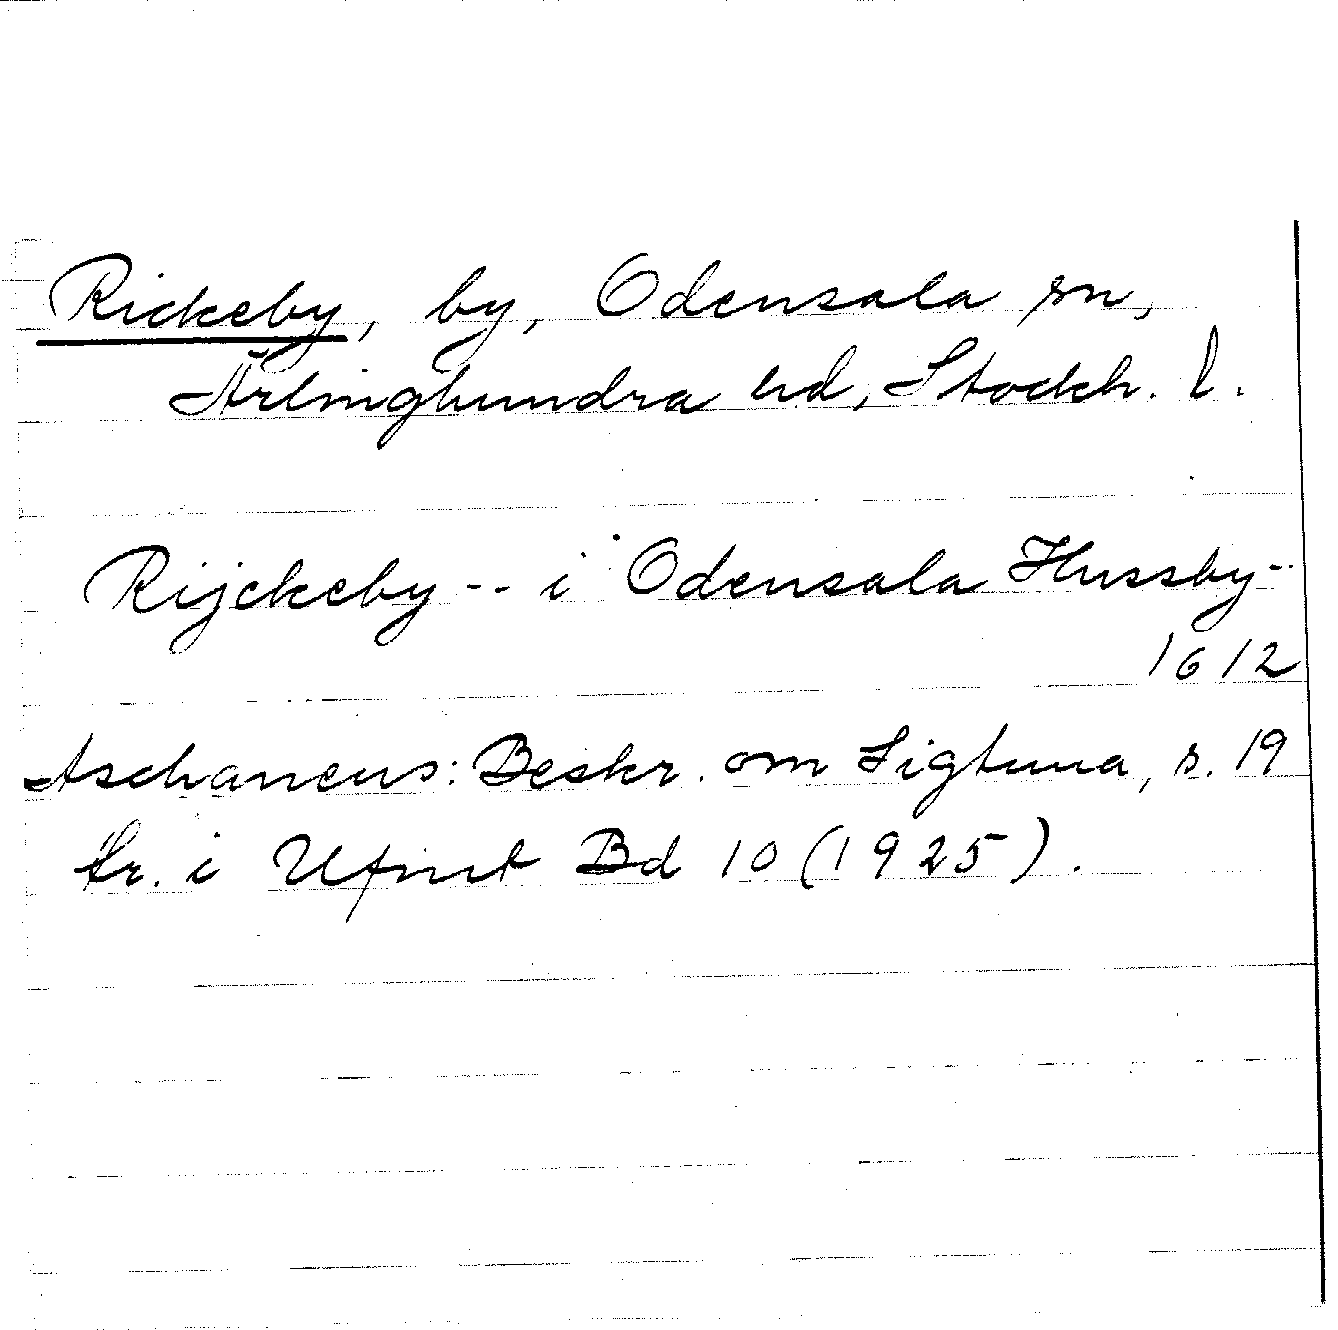 Rickeby, by, Odensala sn,
Ärlinghundra hd, Stockh. l.
Rijckeby -- i Odensala Hussby --
1612
Aschaneus: Beskr. om Sigtuna, s. 19
tr. i Ufmt Bd 10 (1925).